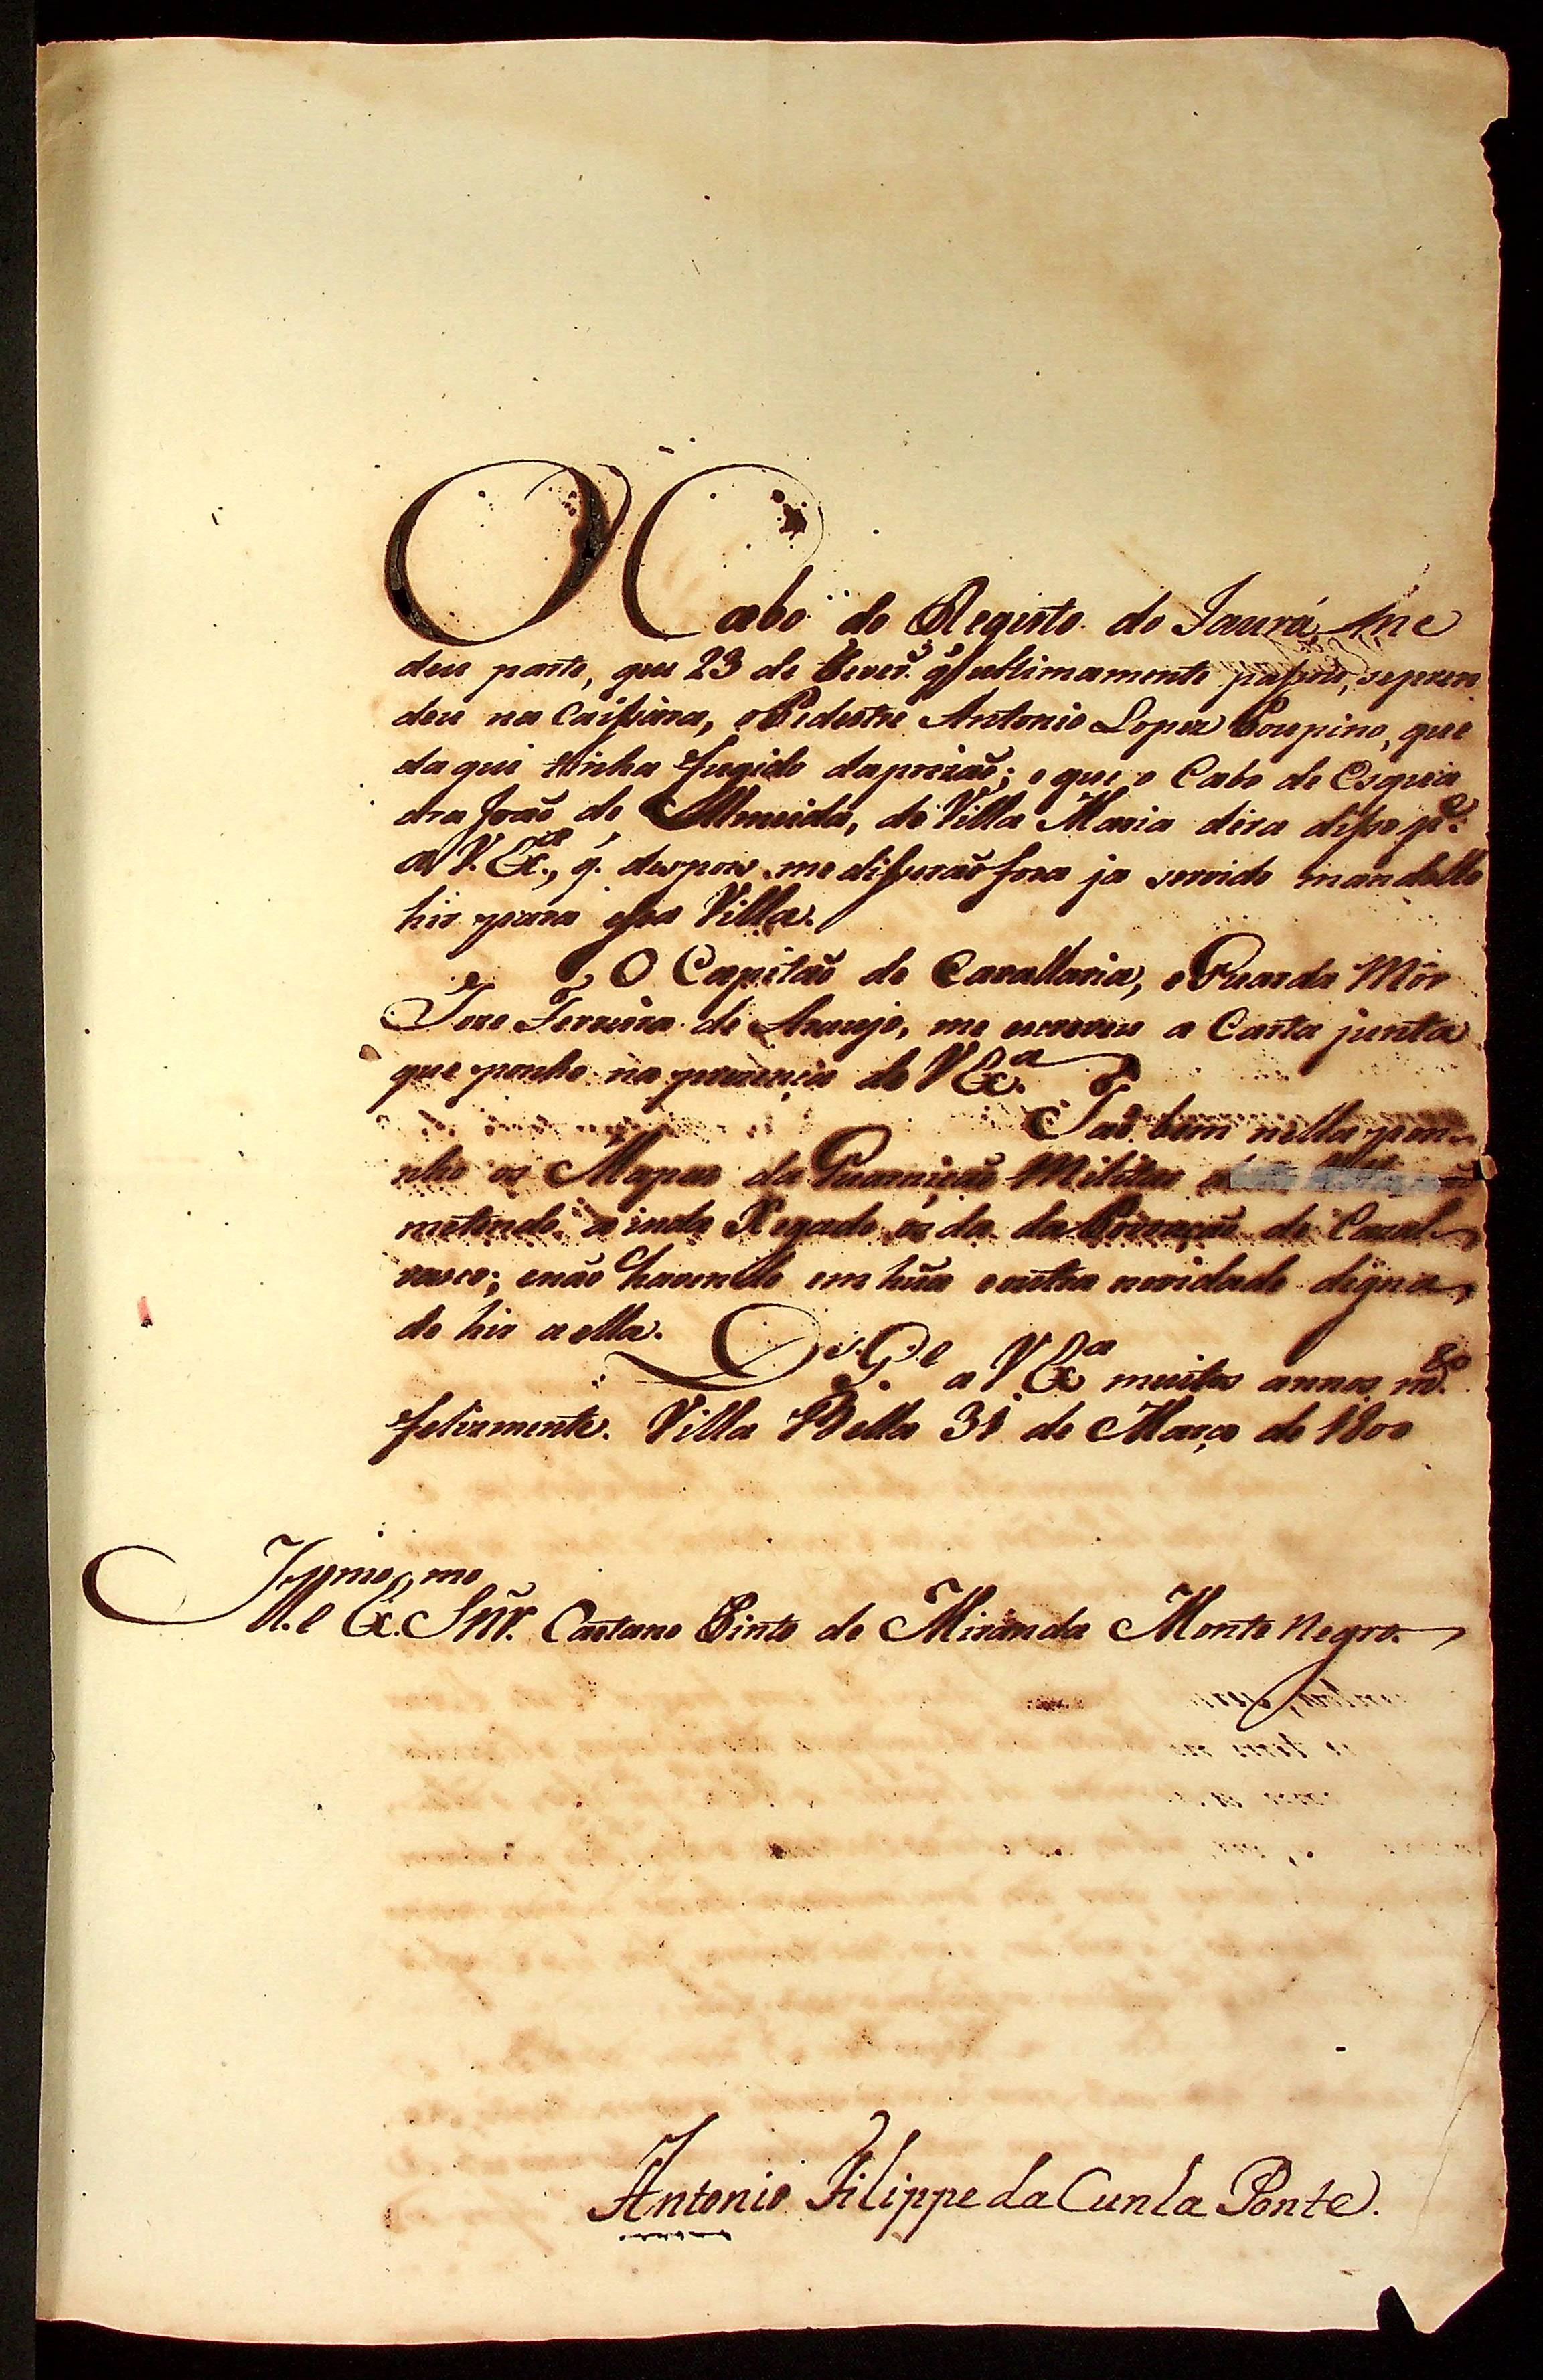 O Cabo do Registo do Jaurú me
deu parte, que 23 de Fever.º q̃ ultimamente passou, se pren
deu na Caissára, o Pedestre Antonio Lopez Poupino, que
daqui tinha fugido daprizaõ; o que o Cabo de Esqua
dra Joaõ de Almeida, de Villa Maria dira disse p.e
a V. Ex.ª, q̃. despois me disseraõ fora ja servido mandallo
hir para essa Villa.
O Capitaõ de Cavallaria, e Guarda Mór
Joze Ferreira de Araujo, me escreveu a Carta junta
que ponho na prezença de V Ex.ª
Taõ bem nella po
nho os Mapas da Guarniçaõ Militar
metendo ainda Xegado os da da Povoaçaõ de Cazal
vasco; enaõ havendo em hũa eoutra novidade digna
de hir a ella.
D.s G.e a V Ex.ª muitos annos m.
felizmente. Villa Bella 31 de Março de 1800
Ill.mo e Ex.mo Sñr. Caetano Pinto de Miranda Monte Negro.
Antonio Filippe da Cunha Ponte.